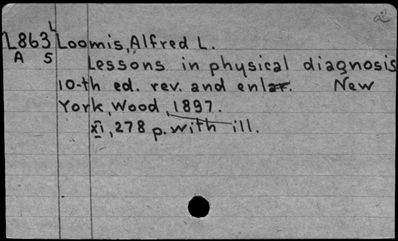 L
L863 Loomis, Alfred L.
A 5 Lessons in physical diagnosis
10-th ed. rev. and enlar. New
York, Wood, 1897.
XI, 278 p. with ill.